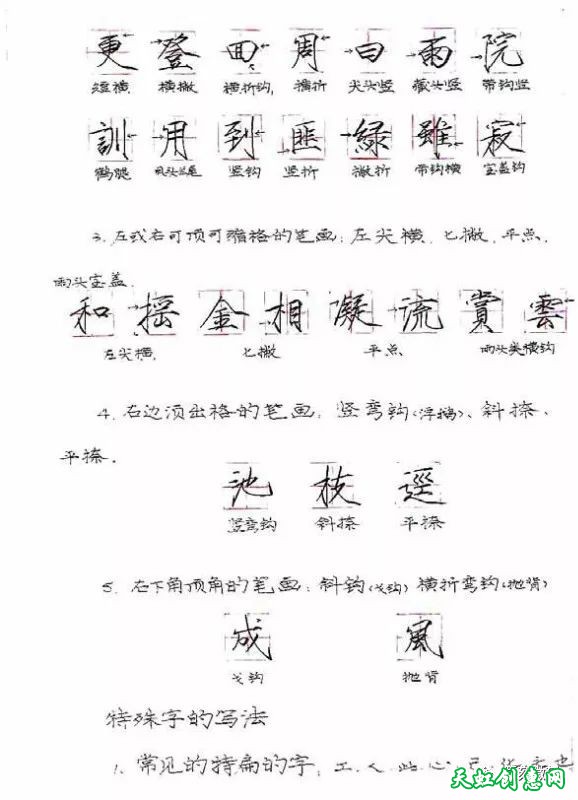 更 登 面 周 白 雨 院
短横 横撇 横折钩 横折 尖头竖 藏头竖 带钩竖
訓 用 到 匪 綠 雖 寂
鹅腿 竖钩 竖折 撇折 带钩横 宝盖钩
3、左或右可顶可缩格的笔画：左尖横、匕撇、平点、
雨头宝盖.
和 摇 金 相 凝 流 賞 雲
左尖横 匕撇 平点 雨头类横钩
4、右边顶出格的笔画：竖弯钩(浮鹅)、斜捺、
平捺.
池 枝 逕
竖弯钩 斜捺 平捺
5、右下角顶角的笔画：斜钩(戈钩) 横折弯钩(抛背)
成 風
戈钩 抛背
特殊字的写法
1、常见的特扁的字：工、人、此、心、
天虹创惠网